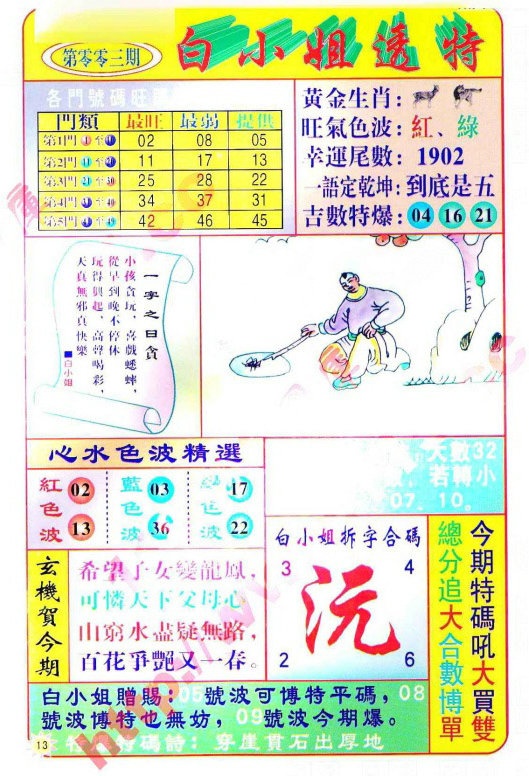 第零零三期
白小姐透特
各門號碼旺
門類 最旺 最弱 提供
第1門 1 至 02 08 05
第2門 11 至 11 17 13
第3門 21 至 30 25 28 22
第4門 至 34 37 31
第5門 至 42 46 45
黃金生肖：
旺氣色波：紅、綠
幸運尾數：1902
一語定乾坤：到底是五
吉數特爆：04 16 21
一字之曰貪
小孩貪玩，喜戲蟋蟀，
從早到晚不停休
玩得興起，高聲喝彩，
天真無邪真快樂
■白小姐
心水色波精選
紅色波 02 13
藍色波 03 36
綠色波 17 22
大數32
若轉小
07.10。
玄機賀今期
希望子女變龍鳳，
可憐天下父母心
山窮水盡疑無路，
百花爭艷又一春。
白小姐拆字合碼
3 4
沅
2 6
今期特碼吼大買雙
總分追大合數博單
白小姐贈賜：05號波可博特平碼，08
號波博特也無妨，09號波今期爆。
特碼詩：穿崖貫石出厚地
13
http://